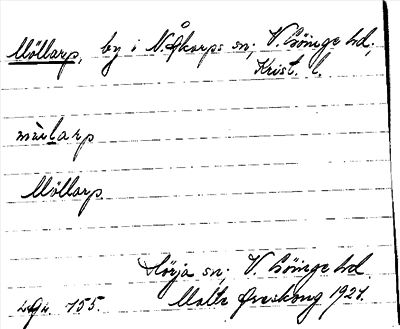 Möllarp, by i N. Åkarps sn; V. Göinge hd;
Krist. l.
mœ̀larp
Möllarp
Hörja sn; V. Göinge hd.
155. Malte Areskoug 1927.